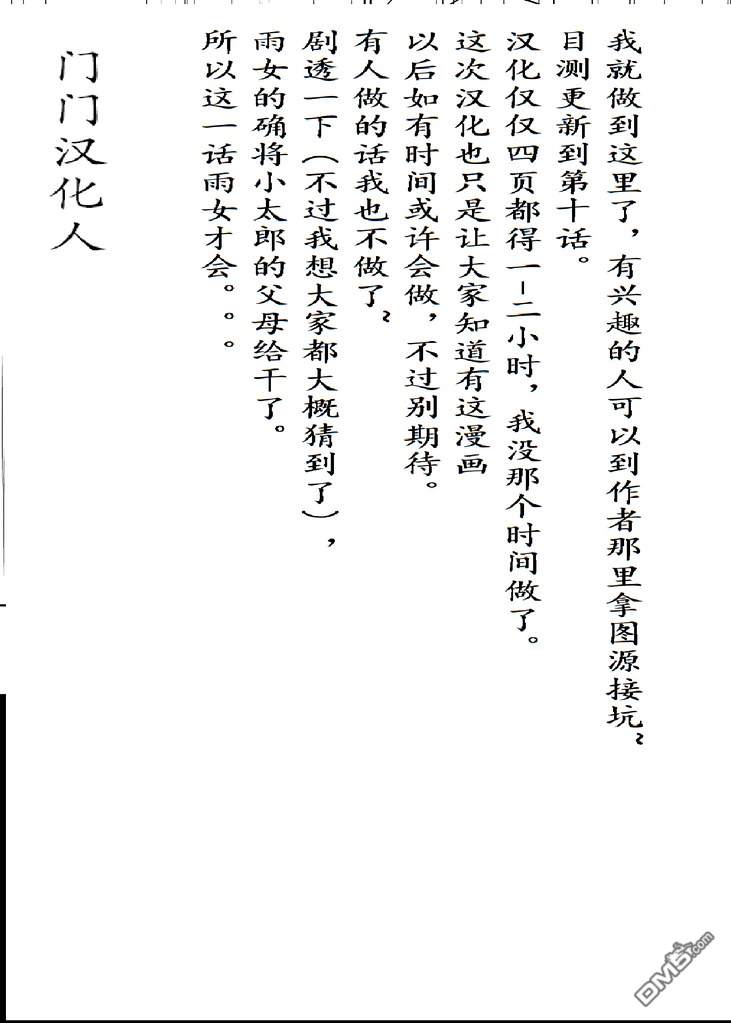 我就做到这里了，有兴趣的人可以到作者那里拿图源接坑~
目测更新到第十话。
汉化仅仅四页都得一-二小时，我没那个时间做了。
这次汉化也只是让大家知道有这漫画
以后如有时间或许会做，不过别期待。
有人做的话我也不做了~
剧透一下（不过我想大家都大概猜到了），
雨女的确将小太郎的父母给干了。
所以这一话雨女才会。。。
门门汉化人
DM5.com